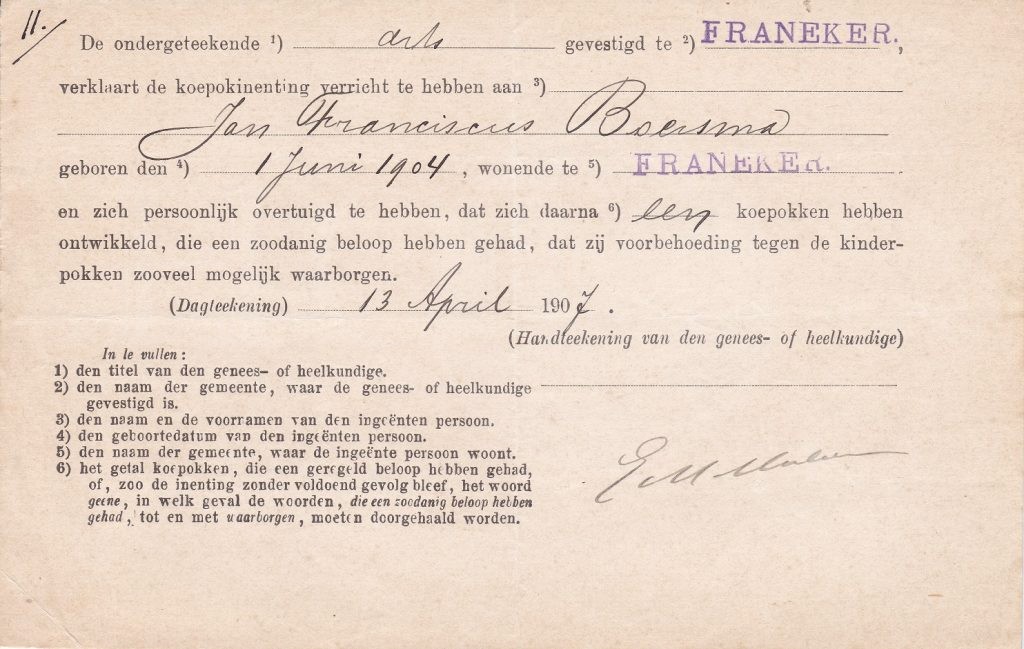 11.
De ondergeteekende 1) arts gevestigd te 2) FRANEKER.,
verklaart de koepokinenting verricht te hebben aan 3)
Jan Franciscus Boersma
geboren den 4) 1 Juni 1904, wonende te 5) FRANEKER.
en zich persoonlijk overtuigd te hebben, dat zich daarna 6) een koepokken hebben
ontwikkeld, die een zoodanig beloop hebben gehad, dat zij voorbehoeding tegen de kinder-
pokken zooveel mogelijk waarborgen.
(Dagteekening) 13 April 1907.
(Handteekening van den genees- of heelkundige)
In te vullen:
1) den titel van den genees- of heelkundige.
2) den naam der gemeente, waar de genees- of heelkundige
gevestigd is.
3) den naam en de voornamen van den ingeënten persoon.
4) den geboortedatum van den ingeënten persoon.
5) den naam der gemeente, waar de ingeënte persoon woont.
6) het getal koepokken, die een geregeld beloop hebben gehad,
of, zoo de inenting zonder voldoend gevolg bleef, het woord
geene, in welk geval de woorden, die een zoodanig beloop hebben
gehad, tot en met waarborgen, moeten doorgehaald worden.